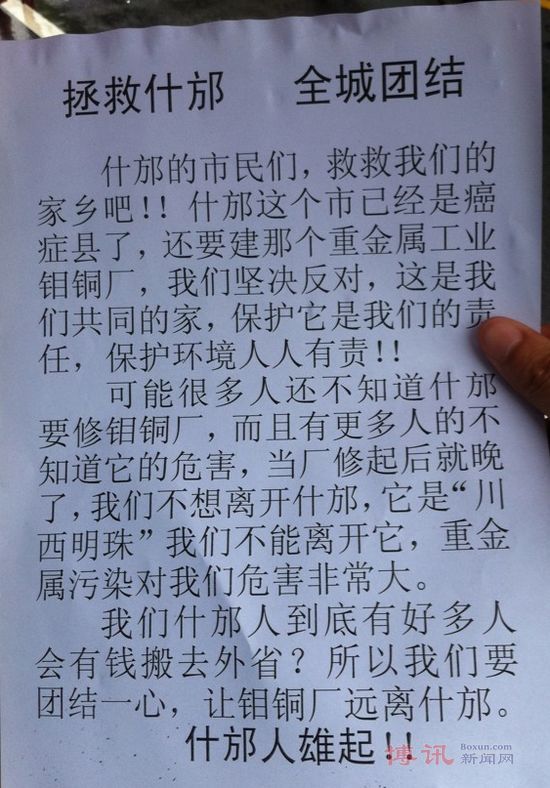 拯救什邡 全城团结
什邡的市民们，救救我们的
家乡吧!! 什邡这个市已经是癌
症县了，还要建那个重金属工业
钼铜厂，我们坚决反对，这是我
们共同的家，保护它是我们的责
任，保护环境人人有责!!
可能很多人还不知道什邡
要修钼铜厂，而且有更多人的不
知道它的危害，当厂修起后就晚
了，我们不想离开什邡，它是“川
西明珠”我们不能离开它，重金
属污染对我们危害非常大。
我们什邡人到底有好多人
会有钱搬去外省？所以我们要
团结一心，让钼铜厂远离什邡。
什邡人雄起!!
博讯 Boxun.com 新闻网